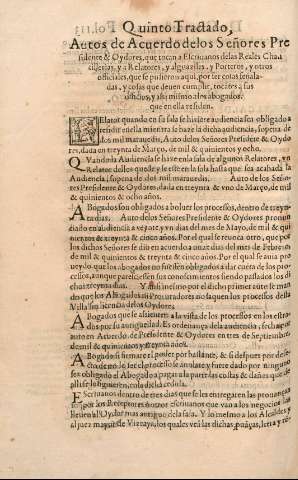 Quinto Tractado,
Autos de Acuerdo delos Señores Pre
sidente & Oydores, que tocan a Escriuanos delas Reales Chan
cillerias, y a Relatores, y alguaziles, y Porteros, y otros
officiales, que se pusieron aqui, por ser cosas señala-
das, y cosas que deuen cumplir, tocãtes a sus
officios, y assi mismo a los abogados,
que en ella residen.
Relator quando en su sala se hiziere audiencia sea obligado a
residir en ella mientra se haze la dicha audiencia, so pena de
dos mil marauedis, Auto delos Señores Presidente & Oydo
res, dada en treynta de Março, de mil & quinientos y ocho.
Quando la Audiencia se haze en la sala de algunos Relatores, vn
Relator dellos quede y se este en la sala hasta que sea acabada la
Audiencia, so pena de dos mil marauedis. Auto delos Seño-
res Presidente & Oydores, dada en treynta & vno de Março, de mil
& quinientos & ocho años.
Abogados son obligados a boluer los processos, dentro de treyn-
ta dias. Auto delos Señores Presidente & Oydores pronun
ciado en audiencia a veynte y vn dias del mes de Mayo, de mil & qui
nientos & treynta & cinco años. Por el qual se reuoca otro, que por
los dichos Señores se dio en acuerdo a nueue dias del mes de Febrero,
de mil & quinientos & treynta & cinco años. Por el qual se auia pro
ueydo que los abogados no fuessen obligados a dar cuenta de los pro-
cessos, aunque pareciessen sus conoscimientos siendo passados los di
chos treynta dias. Y assi mesmo por el dicho primer auto se man
do que los Abogados ni Procuradores no saquen los processos desta
Villa sin licencia delos Oydores.
Abogados que se assienten a la vista de los processos en los estra-
dos por su antiguedad. Es ordenança dela audiencia, fecha por
auto en Acuerdo, de Presidente & Oydores en tres de Septiembre
de mil & quinientos y treynta años.
Abogado si firmare el poder por bastante, & si despues por defe-
cto de no lo ser el processo se anulare, fuere dado por ninguno
sea obligado el Abogado a pagar a la parte las costas & daños que de
llo se siguieren, con la dicha cedula.
Escriuanos dentro de tres dias que les entregaren las prouanças
por los Receptores o otros escriuanos que van a los negocios las
lleuen al Oydor mas antiguo dela sala. Y lo mesmo a los Alcaldes y
al juez mayor de Vizcaya, los quales vean las dichas prouãças, letra y re-